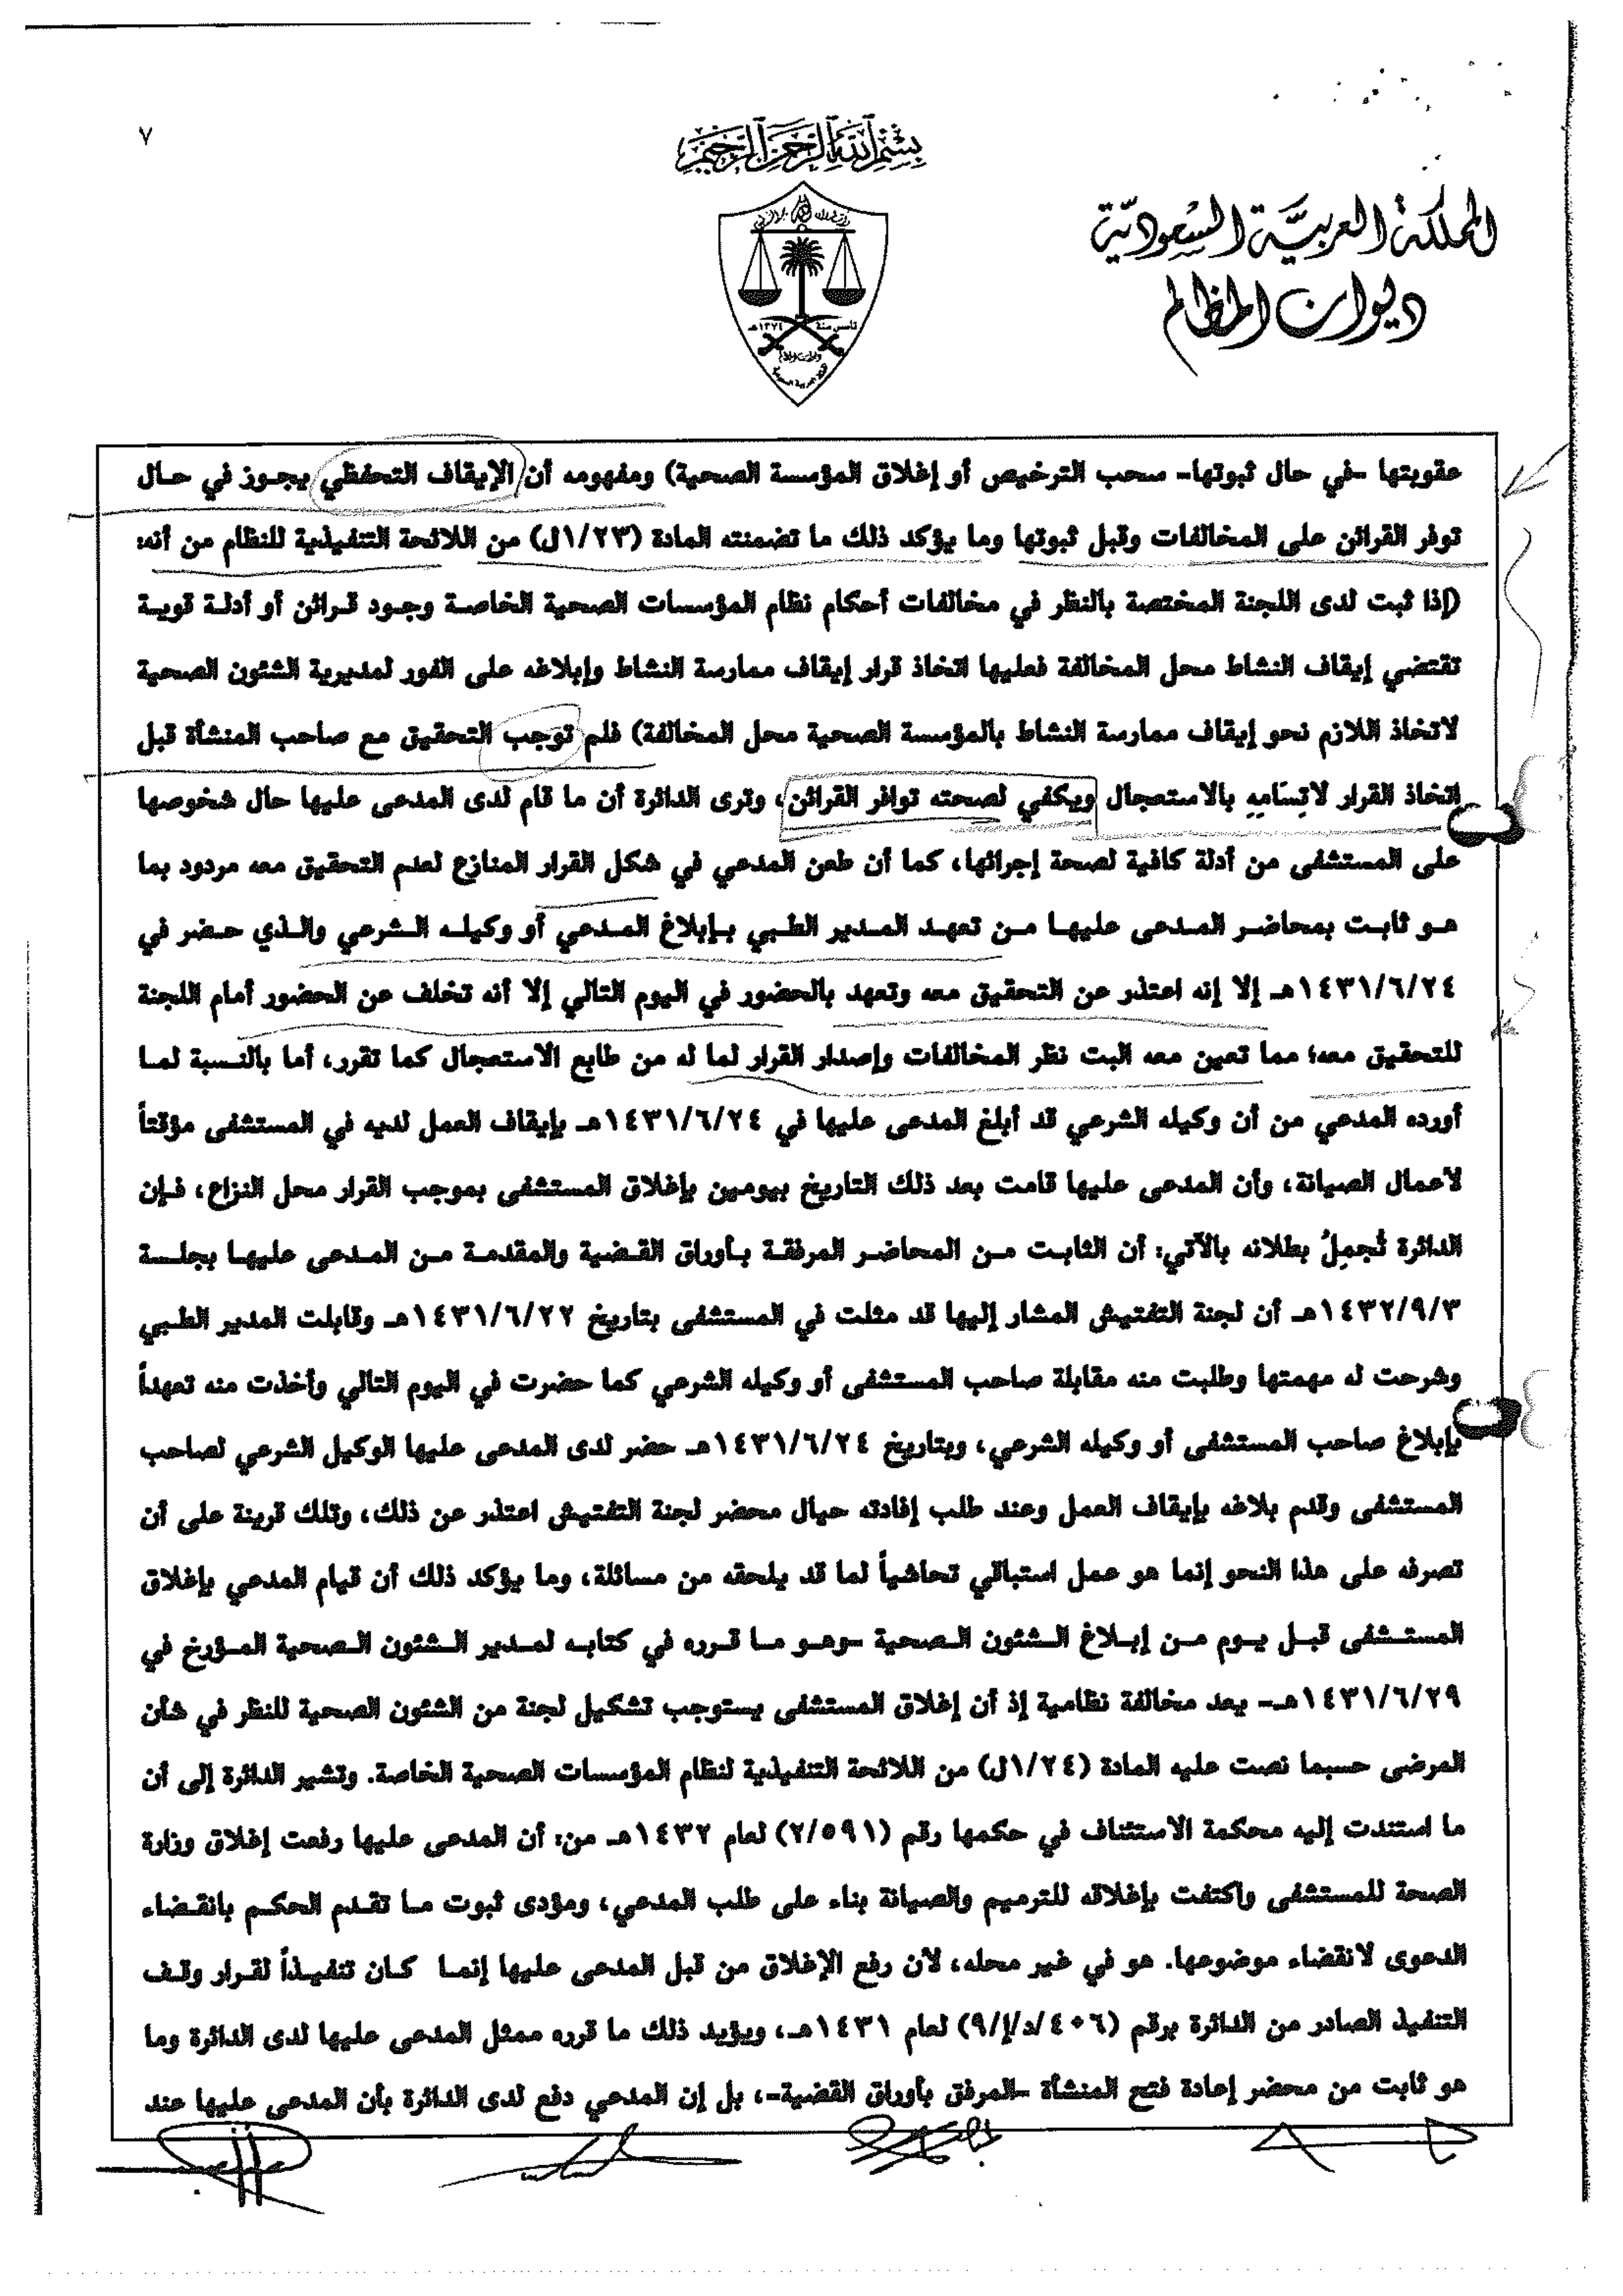 ٧
بسم الله الرحمن الرحيم
المملكة العربية السعودية
ديوان المظالم
تأسس سنة ١٣٧٤هـ
عقوبتها -في حال ثبوتها- سحب الترخيص أو إغلاق المؤسسة الصحية) ومفهومه أن الإيقاف التحفظي يجوز في حال
توفر القرائن على المخالفات وقبل ثبوتها وما يؤكد ذلك ما تضمنته المادة (١/٢٣ل) من اللائحة التنفيذية للنظام من أنه:
(إذا ثبت لدى اللجنة المختصة بالنظر في مخالفات أحكام نظام المؤسسات الصحية الخاصة وجود قرائن أو أدلة قوية
تقتضي إيقاف النشاط محل المخالفة فعليها اتخاذ قرار إيقاف ممارسة النشاط وإبلاغه على الفور لمديرية الشئون الصحية
لاتخاذ اللازم نحو إيقاف ممارسة النشاط بالمؤسسة الصحية محل المخالفة) فلم توجب التحقيق مع صاحب المنشأة قبل
اتخاذ القرار لاتِسَامِهِ بالاستعجال ويكفي لصحته توافر القرائن، وترى الدائرة أن ما قام لدى المدعى عليها حال شخوصها
على المستشفى من أدلة كافية لصحة إجرائها، كما أن طعن المدعي في شكل القرار المنازع لعدم التحقيق معه مردود بما
هو ثابت بمحاضر المدعى عليها من تعهد المدير الطبي بإبلاغ المدعي أو وكيله الشرعي والذي حضر في
١٤٣١/٦/٢٤هـ إلا إنه اعتذر عن التحقيق معه وتعهد بالحضور في اليوم التالي إلا أنه تخلف عن الحضور أمام اللجنة
للتحقيق معه؛ مما تعين معه البت نظر المخالفات وإصدار القرار لما له من طابع الاستعجال كما تقرر، أما بالنسبة لما
أورده المدعي من أن وكيله الشرعي قد أبلغ المدعى عليها في ١٤٣١/٦/٢٤هـ بإيقاف العمل لديه في المستشفى مؤقتاً
لأعمال الصيانة، وأن المدعى عليها قامت بعد ذلك التاريخ بيومين بإغلاق المستشفى بموجب القرار محل النزاع، فإن
الدائرة تُجمِلُ بطلانه بالآتي: أن الثابت من المحاضر المرفقة بأوراق القضية والمقدمة من المدعى عليها بجلسة
١٤٣٢/٩/٣هـ أن لجنة التفتيش المشار إليها قد مثلت في المستشفى بتاريخ ١٤٣١/٦/٢٢هـ وقابلت المدير الطبي
وشرحت له مهمتها وطلبت منه مقابلة صاحب المستشفى أو وكيله الشرعي كما حضرت في اليوم التالي وأخذت منه تعهداً
بإبلاغ صاحب المستشفى أو وكيله الشرعي، وبتاريخ ١٤٣١/٦/٢٤هـ حضر لدى المدعى عليها الوكيل الشرعي لصاحب
المستشفى وقدم بلاغه بإيقاف العمل وعند طلب إفادته حيال محضر لجنة التفتيش اعتذر عن ذلك، وتلك قرينة على أن
تصرفه على هذا النحو إنما هو عمل استباقي تحاشياً لما قد يلحقه من مسائلة، وما يؤكد ذلك أن قيام المدعي بإغلاق
المستشفى قبل يوم من إبلاغ الشئون الصحية -وهو ما قرره في كتابه لمدير الشئون الصحية المؤرخ في
١٤٣١/٦/٢٩هـ- يعد مخالفة نظامية إذ أن إغلاق المستشفى يستوجب تشكيل لجنة من الشئون الصحية للنظر في شأن
المرضى حسبما نصت عليه المادة (١/٢٤ل) من اللائحة التنفيذية لنظام المؤسسات الصحية الخاصة. وتشير الدائرة إلى أن
ما استندت إليه محكمة الاستئناف في حكمها رقم (٢/٥٩١) لعام ١٤٣٢هـ من: أن المدعى عليها رفعت إغلاق وزارة
الصحة للمستشفى واكتفت بإغلاقه للترميم والصيانة بناء على طلب المدعي، ومؤدى ثبوت ما تقدم الحكم بانقضاء
الدعوى لانقضاء موضوعها. هو في غير محله، لأن رفع الإغلاق من قبل المدعى عليها إنما كان تنفيذاً لقرار وقف
التنفيذ الصادر من الدائرة برقم (٤٠٦/د/إ/٩) لعام ١٤٣١هـ، ويؤيد ذلك ما قرره ممثل المدعى عليها لدى الدائرة وما
هو ثابت من محضر إعادة فتح المنشأة -المرفق بأوراق القضية-، بل إن المدعي دفع لدى الدائرة بأن المدعى عليها عند